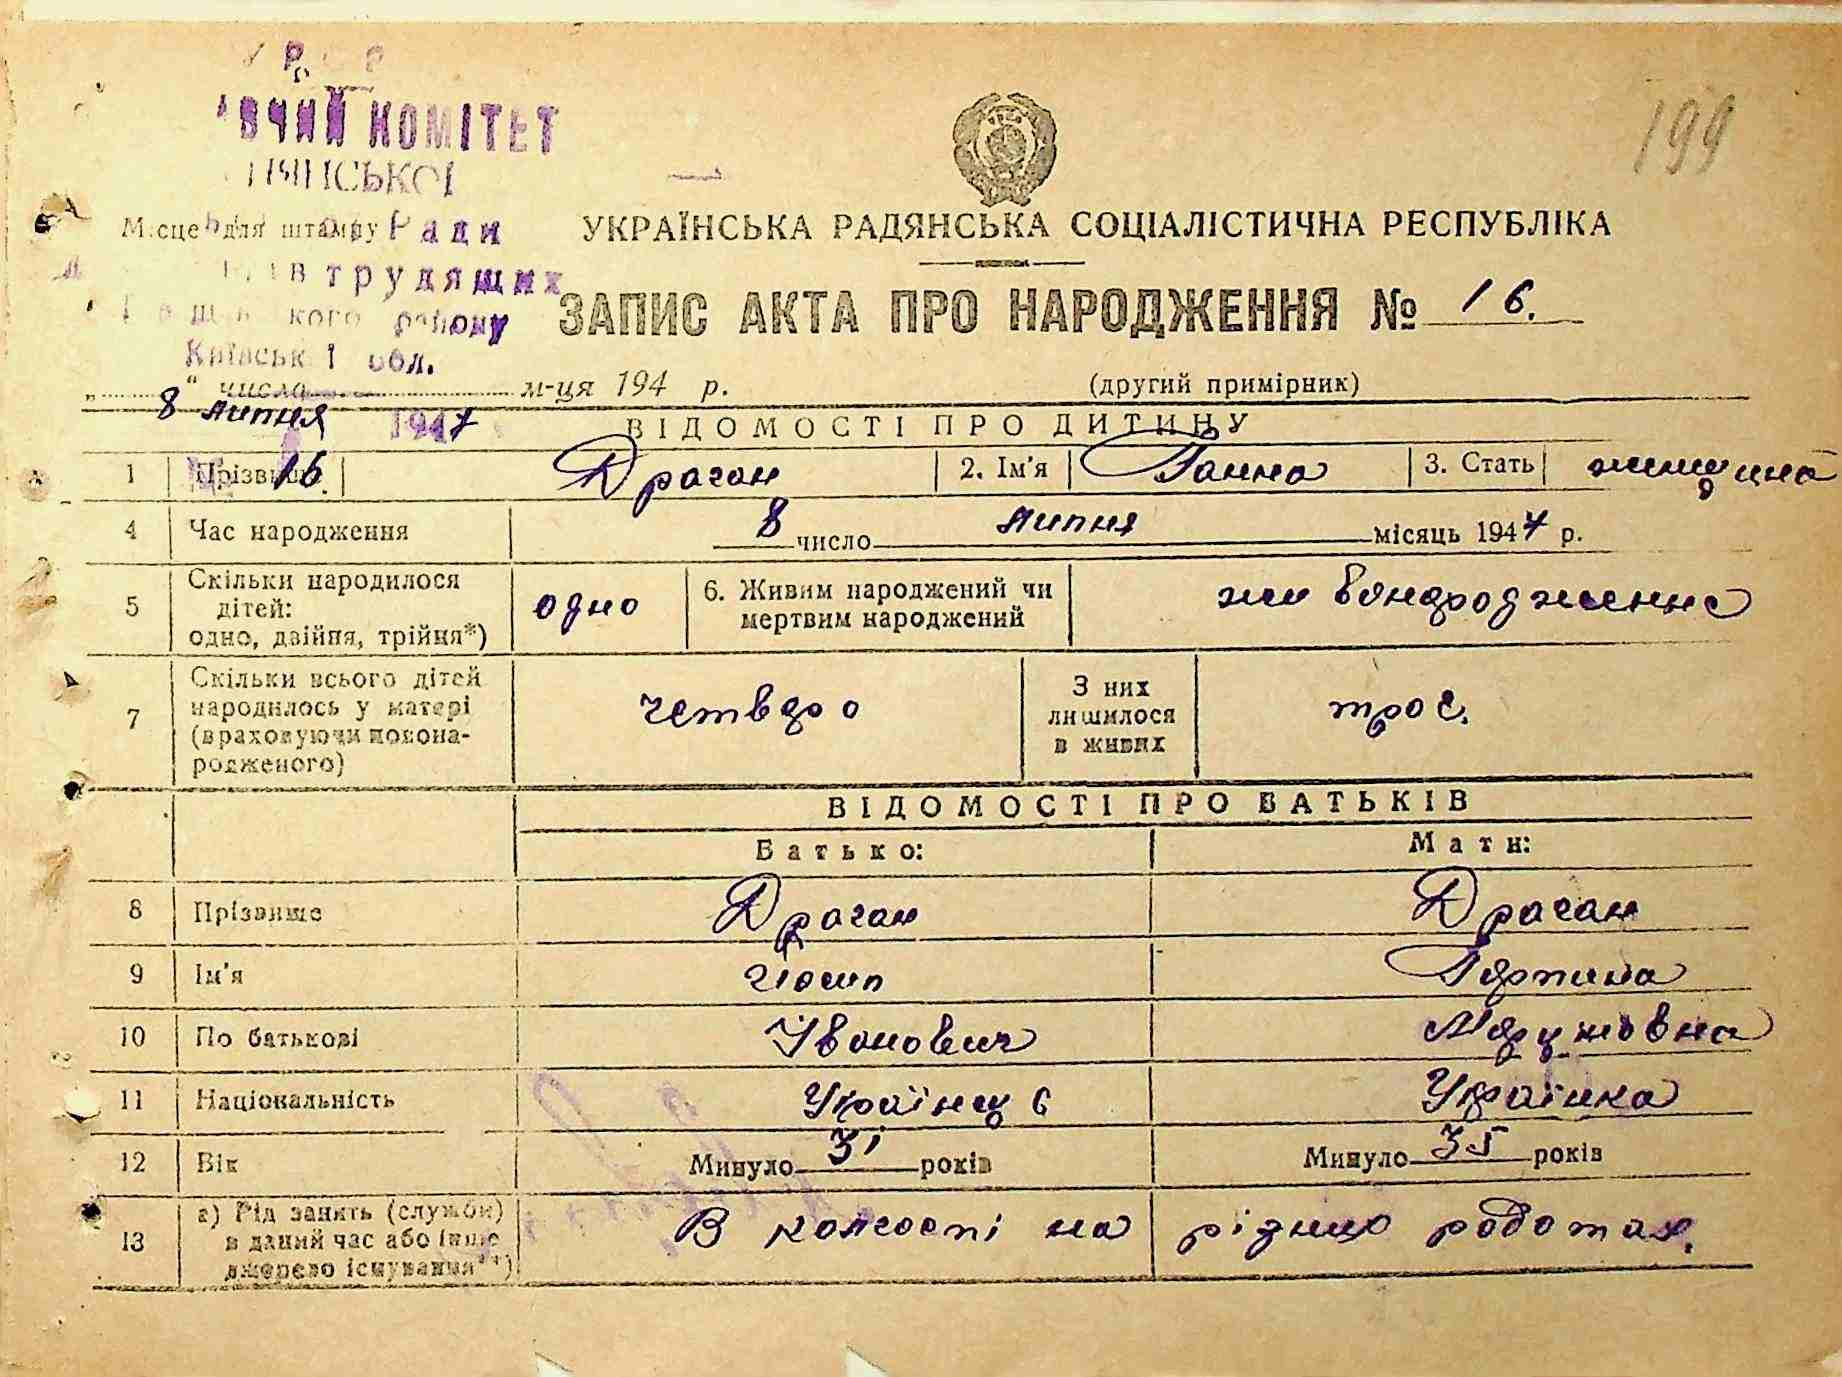 199
КОМІТЕТ
Місце для штампу Ради
трудящих
району
обл.
УКРАЇНСЬКА РАДЯНСЬКА СОЦІАЛІСТИЧНА РЕСПУБЛІКА
ЗАПИС АКТА ПРО НАРОДЖЕННЯ № 16.
„ “ числа м-ця 194 р. (другий примірник)
8 липня 1947
ВІДОМОСТІ ПРО ДИТИНУ
1 Прізвище 16. Драган 2. Ім'я Ганна 3. Стать
4 Час народження 8 число липня місяць 1947 р.
5 Скільки народилося дітей: одно, двійня, трійня*) одно 6. Живим народжений чи мертвим народжений
7 Скільки всього дітей народилось у матері (враховуючи новонародженого) четвдро З них лишилося в живих троє.
ВІДОМОСТІ ПРО БАТЬКІВ
Батько: Мати:
8 Прізвище Драган Драган
9 Ім'я Йосип
10 По батькові Іванович
11 Національність Українець Українка
12 Вік Минуло 31 років Минуло 35 років
13 а) Рід занять (служби) в даний час або інше джерело існування**) В колгоспі на роботах.